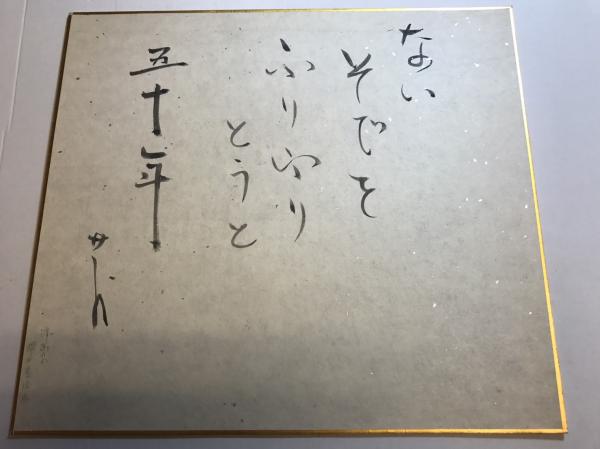 ない
そでを
ふりふり
とうと
五十年